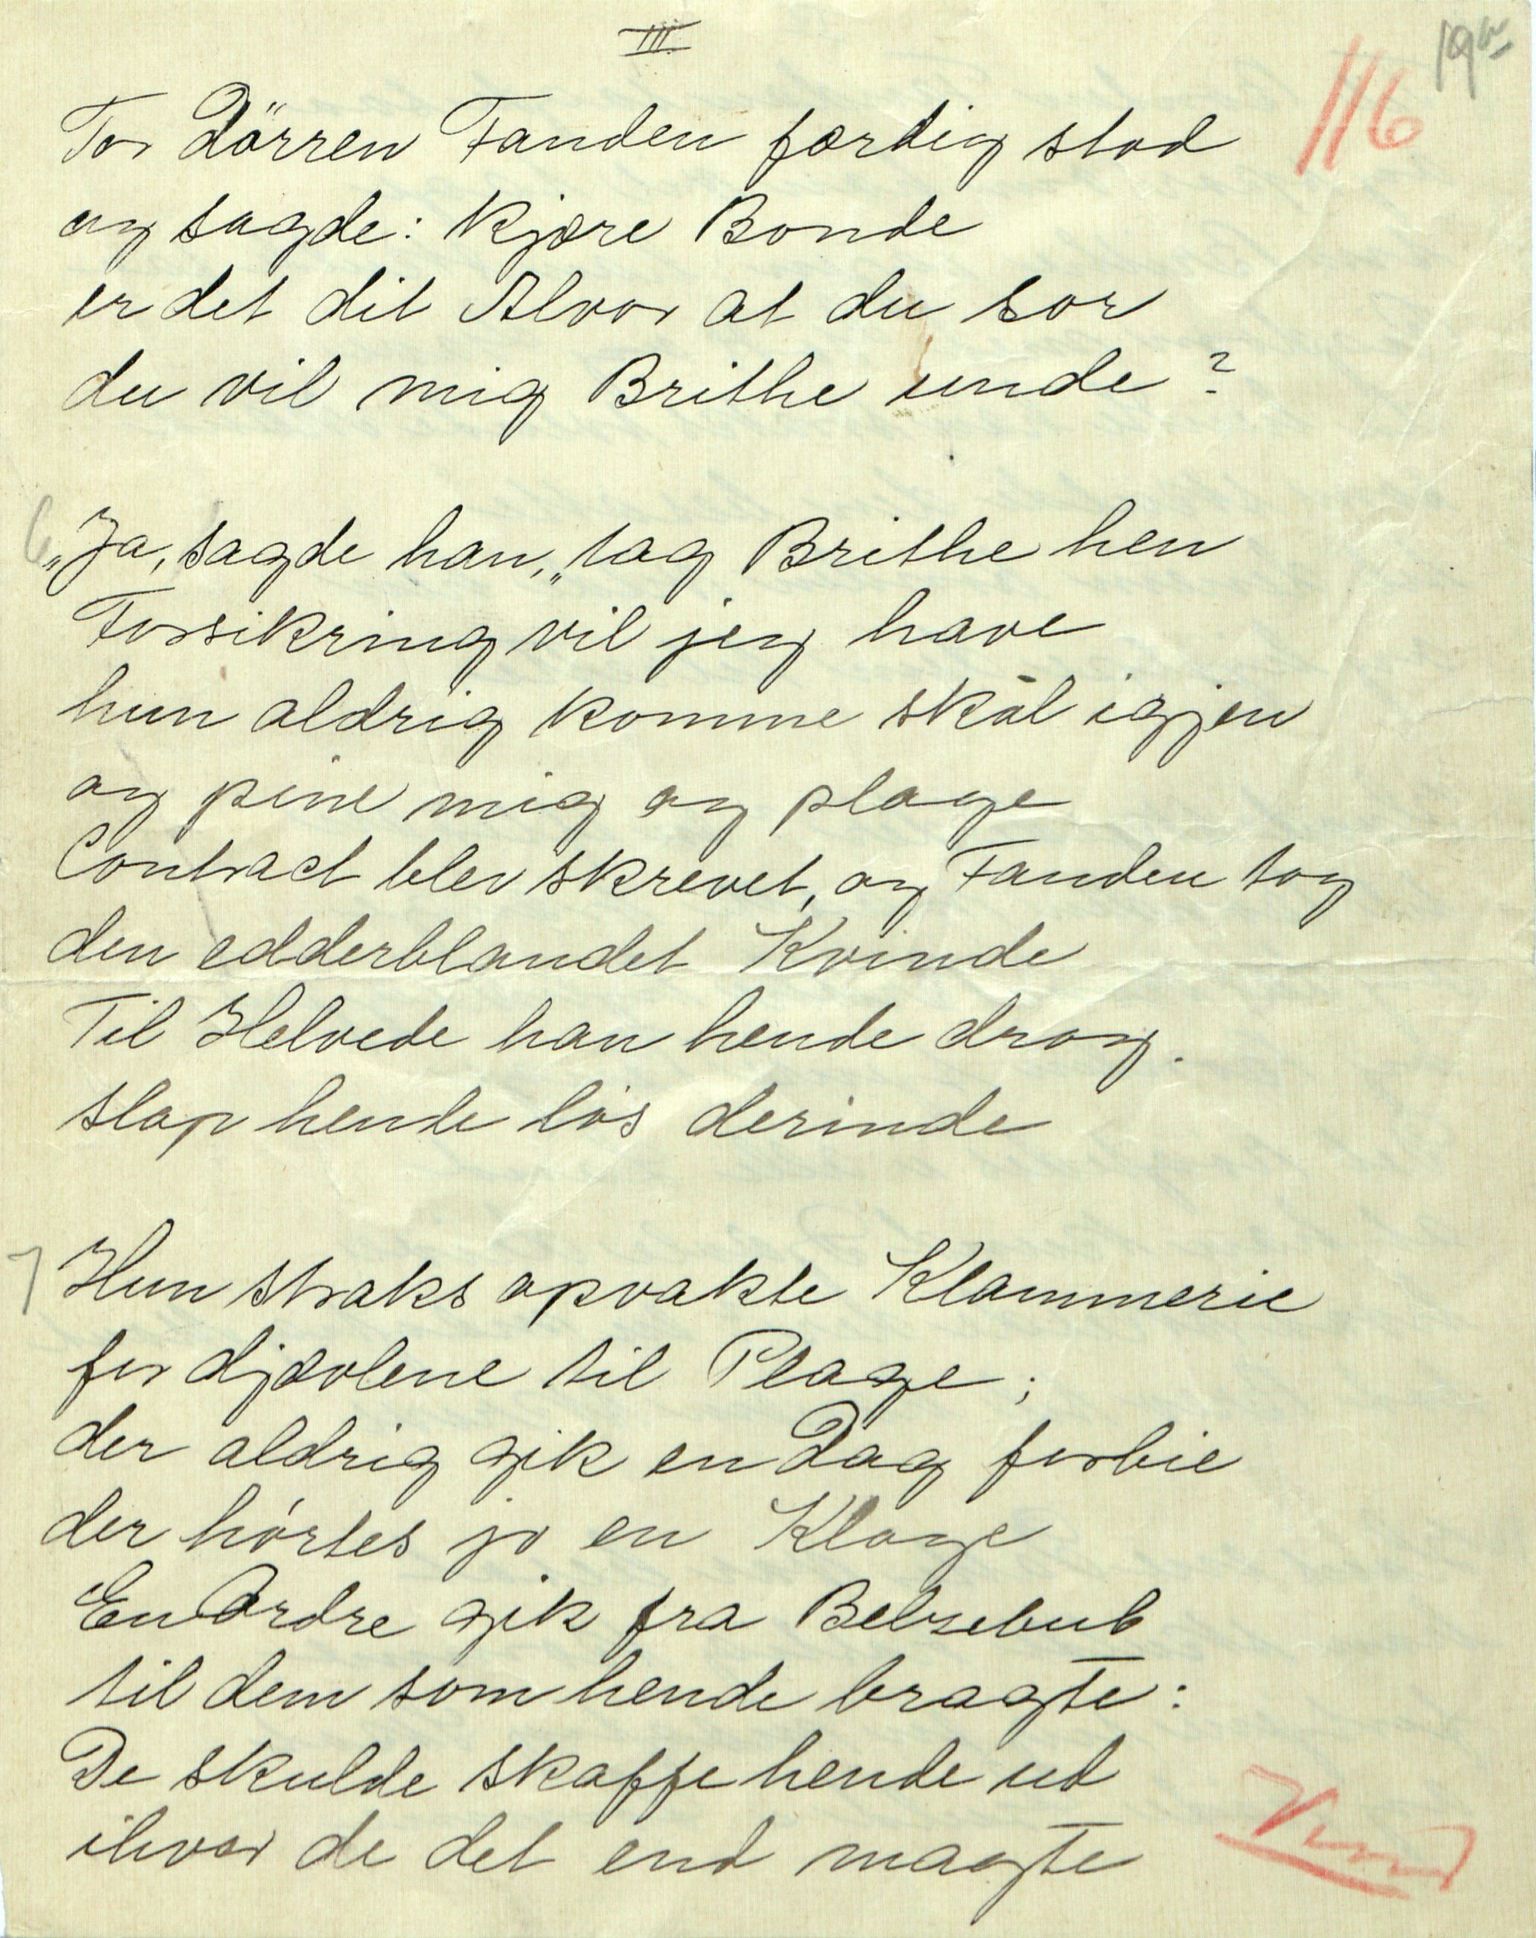 III.
116
For Dörren Fanden færdig stod
og sagde: Kjære Bonde
er det dit Alvor at du sor
du vil mig Brithe unde?
6 „Ja, sagde han, „tag Brithe hen
Forsikring vil jeg have
hun aldrig komme skal igjen
og pine mig og plage
Contract blev skrevet, og Fanden tog
den edderblandet Kvinde
Til Helvede han hende drog.
slap hende lös derinde
7 Hun straks opvakte Klammerie
for djævlene til Plage;
der aldrig gik en Dag forbie
der hörtes jo en Klage
En Ordre gik fra Belzebub
til dem som hende bragte:
De skulde skaffe hende ud
ihvor de det end magte
Vend